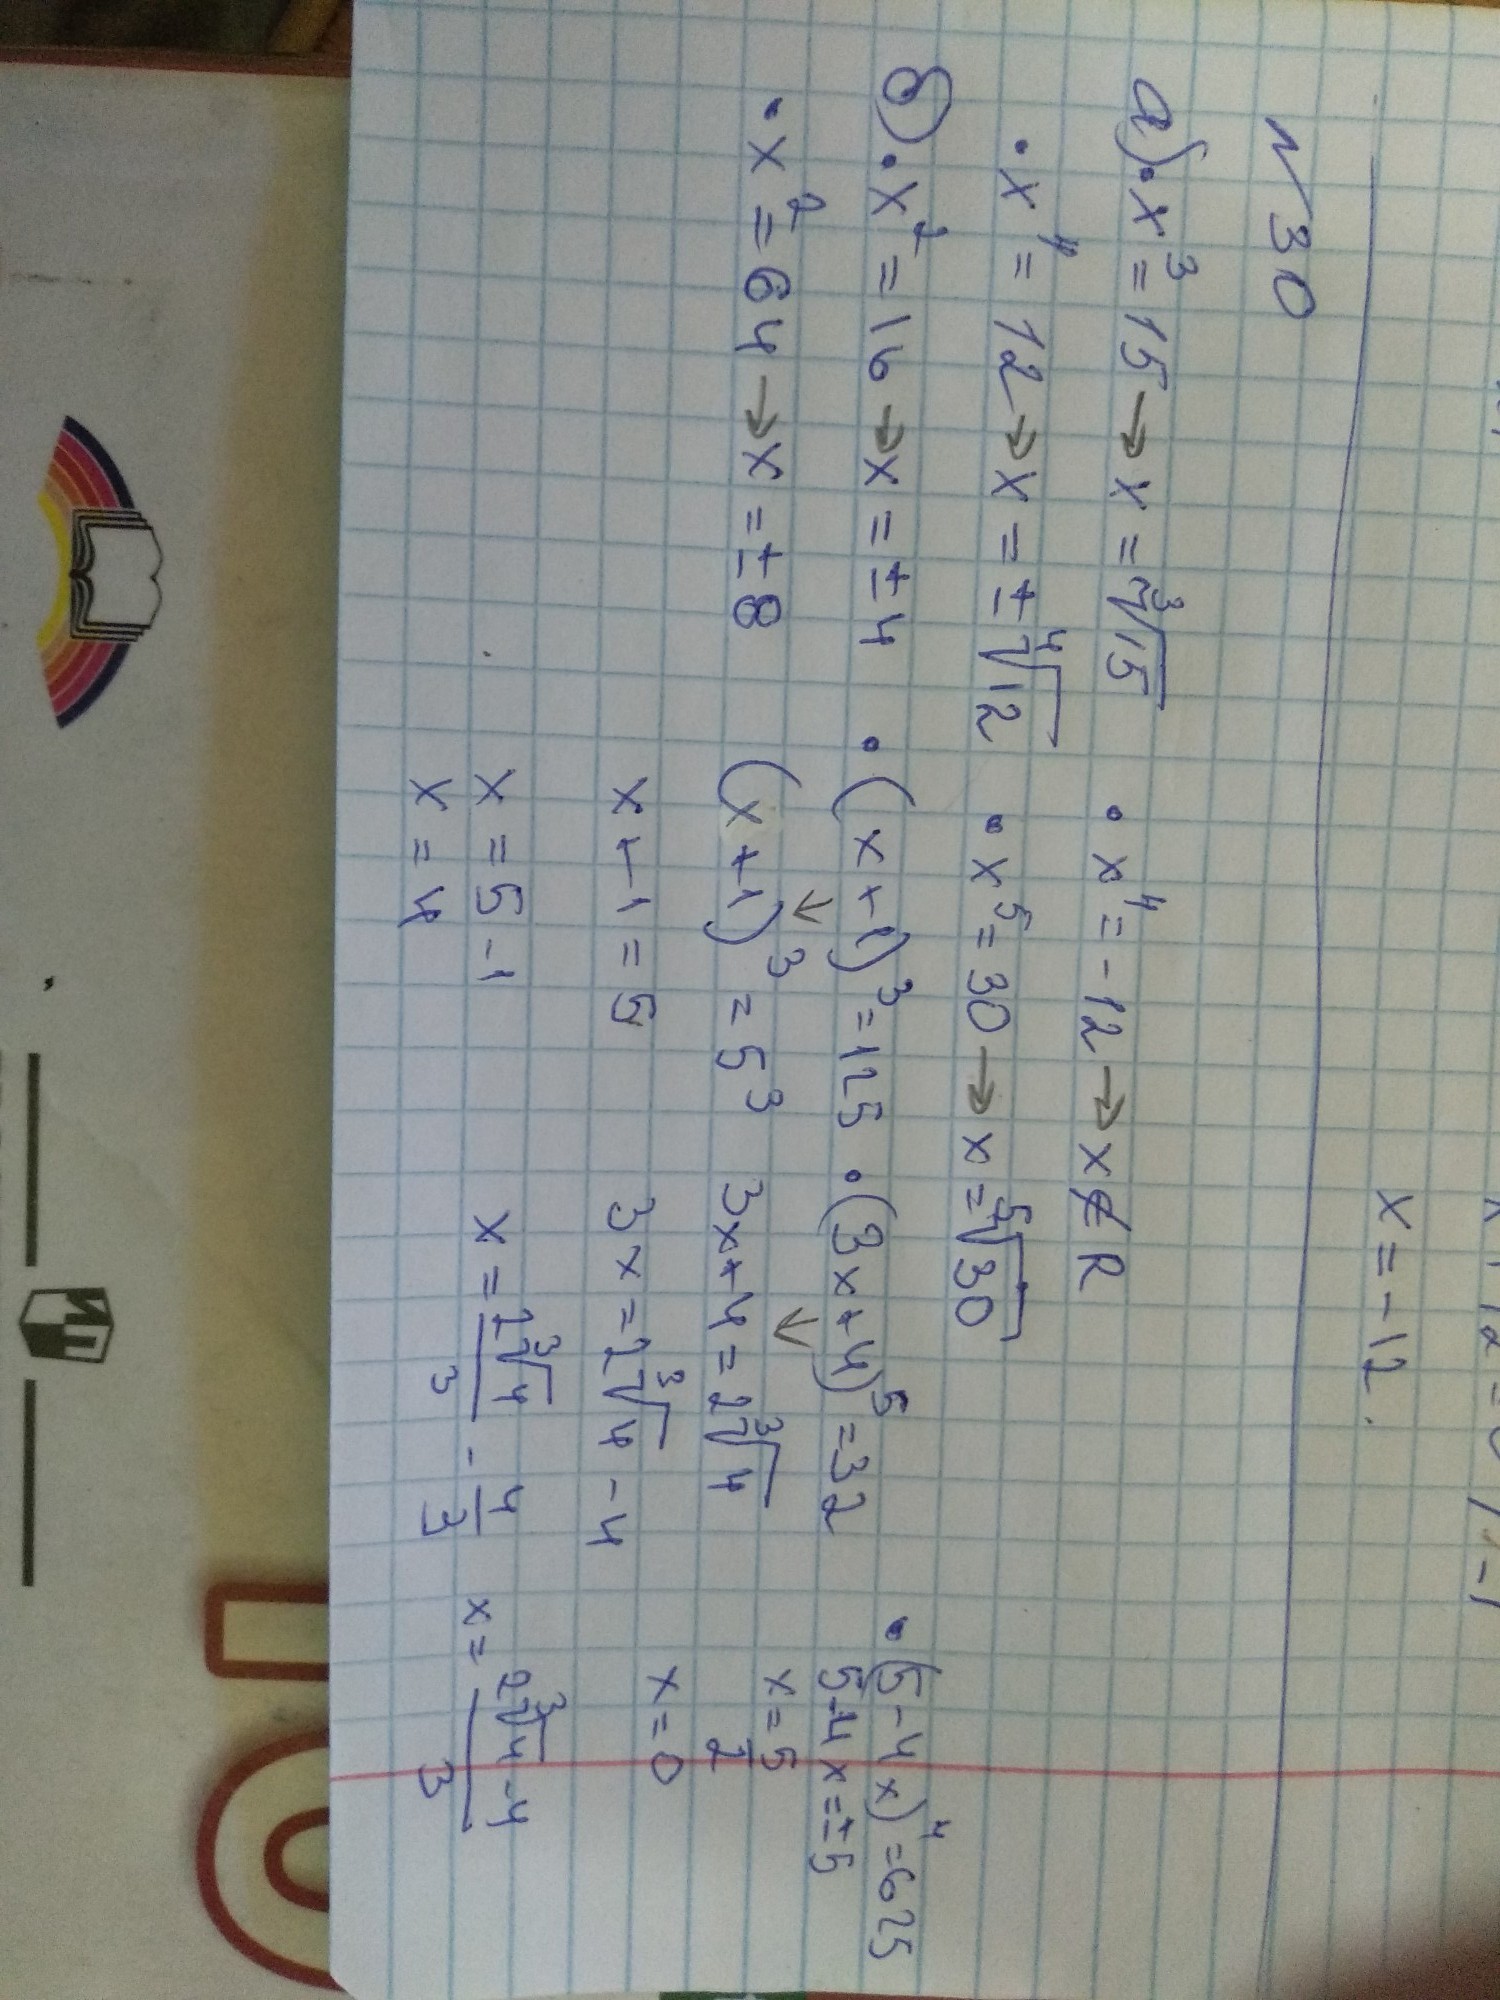 x = -12.
N30
а) • x³ = 15 → x = ³√15 • x⁴ = -12 → x ∉ R
• x⁴ = 12 → x = ± ⁴√12 • x⁵ = 30 → x = ⁵√30
б) • x² = 16 → x = ± 4 • (x + 1)³ = 125 • (3x + 4)⁵ = 32 • (5 - 4x)⁴ = 625
• x² = 64 → x = ± 8 (x + 1)³ = 5³ 3x + 4 = 2 ³√4 5 - 4x = ± 5
x + 1 = 5 3x = 2 ³√4 - 4 x = 5/2
x = 5 - 1 x = 2 ³√4/3 - 4/3 x = 0
x = 4 x = (2 ³√4 - 4)/3